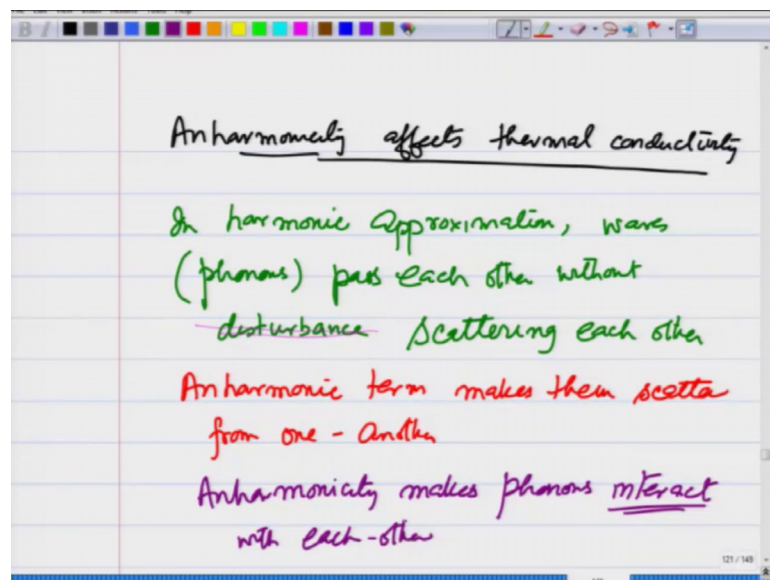 Anharmonicity affects thermal conductivity
In harmonic Approximation, waves
(phonons) pass each other without
disturbance scattering each other
Anharmonic term makes them scatter
from one-another
Anharmonicity makes phonons interact
with each-other
121 / 149